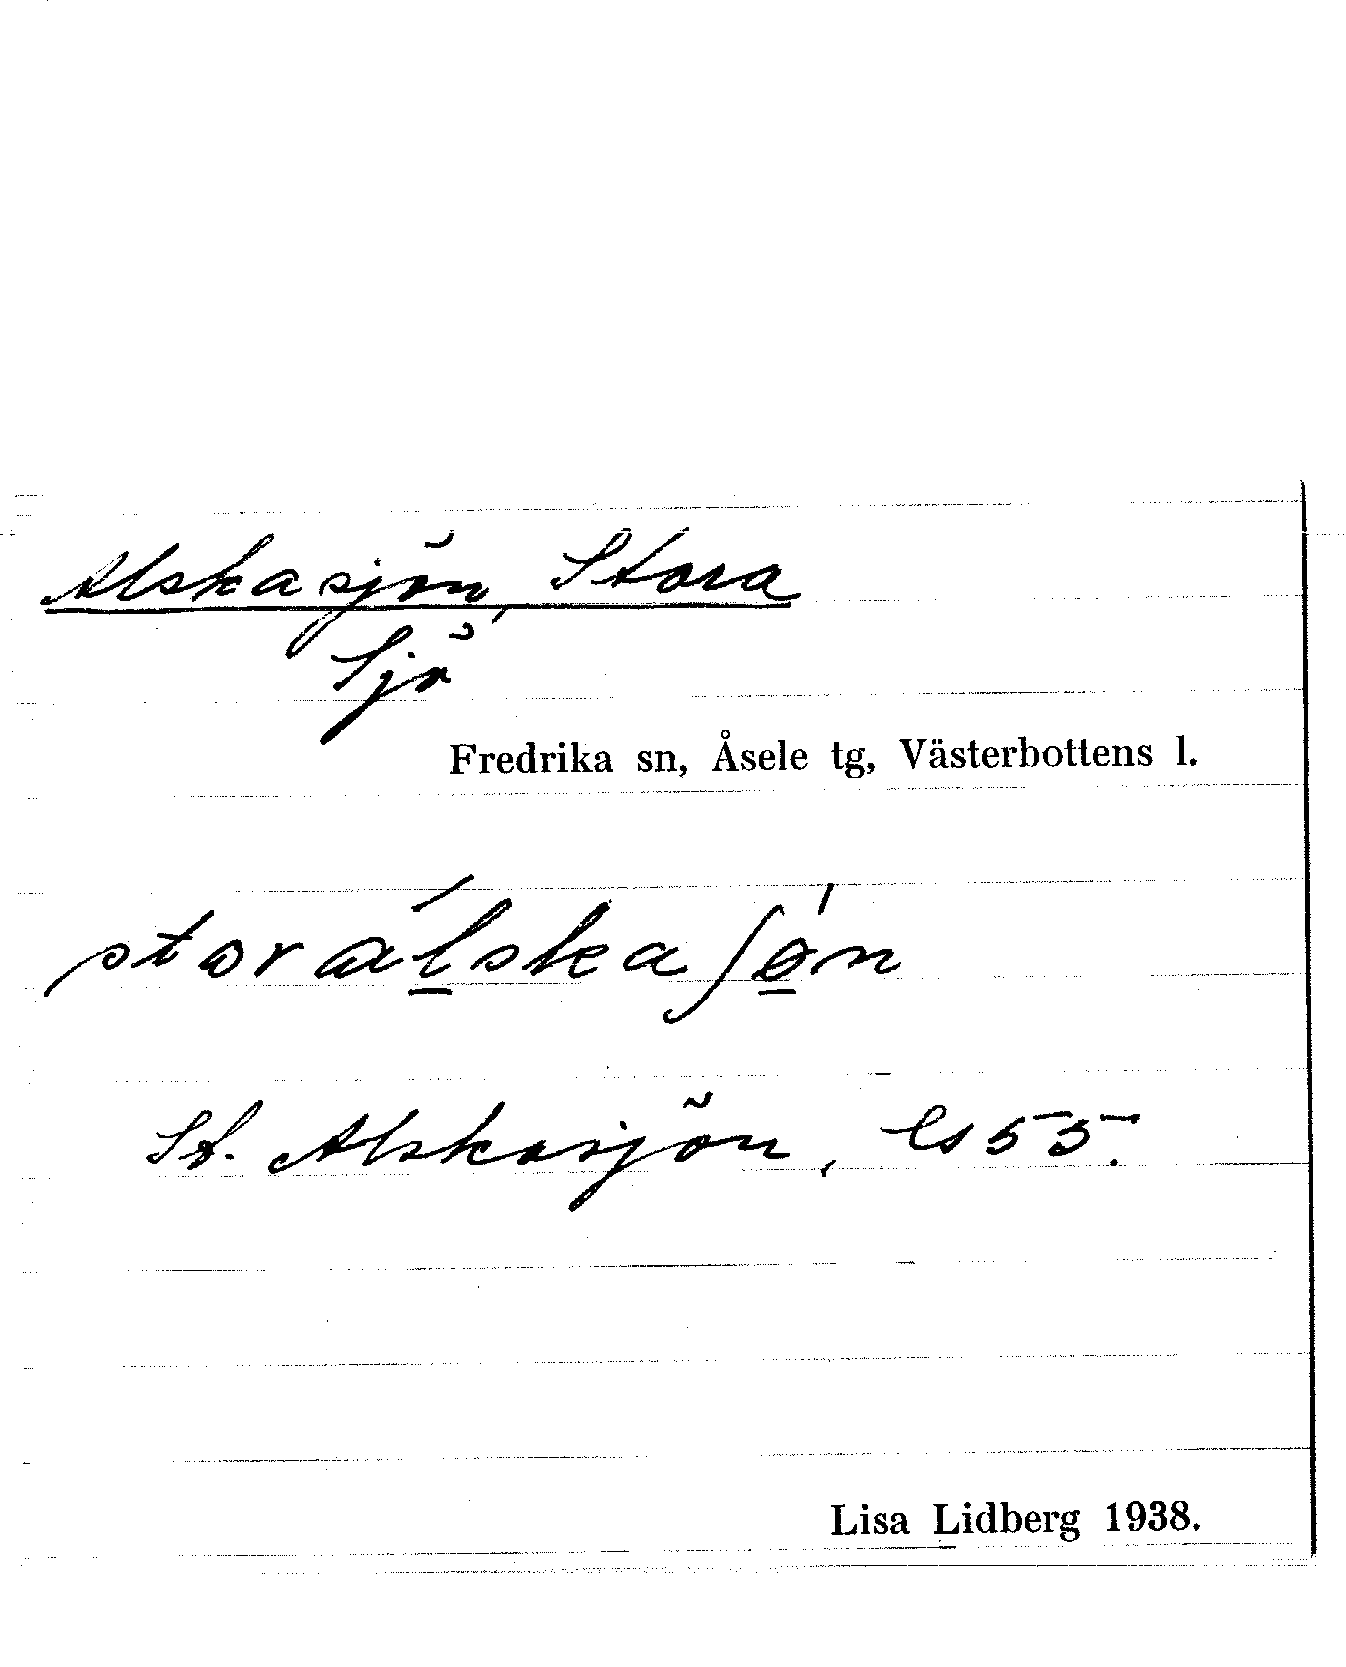 Alskasjön, Stora
Sjö
Fredrika sn, Åsele tg, Västerbottens l.
St. Alskasjön, Es 55.
Lisa Lidberg 1938.